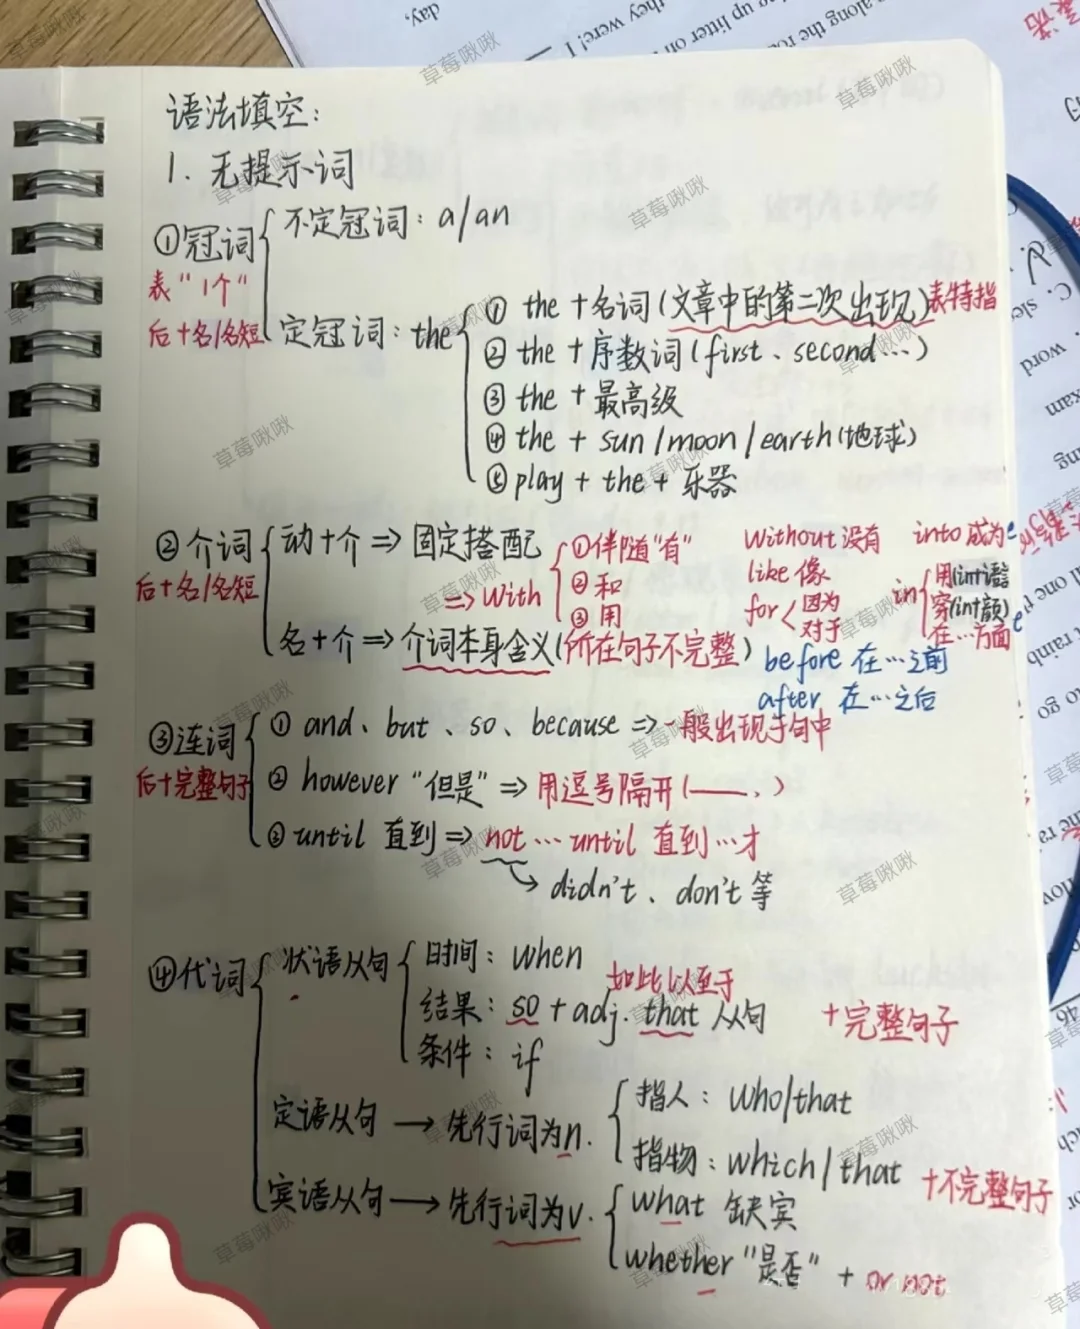 语法填空：
1. 无提示词
①冠词 不定冠词：a/an
表"1个"
后+名/名短
定冠词：the
① the +名词(文章中的第二次出现) 表特指
② the +序数词(first、second…)
③ the +最高级
④ the + sun/moon/earth(地球)
⑤ play + the + 乐器
②介词 动+介⇒固定搭配
后+名/名短
⇒ with
①伴随"有"
②和
③用
without没有
like像
for 因为
对于
into成为
in 用(int语言)
穿(int颜)
在…方面
名+介⇒介词本身含义(所在句子不完整)
before 在…之前
after 在…之后
③连词 ① and、but、so、because ⇒一般出现于句中
后+完整句子
② however "但是" ⇒ 用逗号隔开(——，)
③ until 直到 ⇒ not … until 直到…才
didn't、don't 等
④代词 状语从句 时间：when
如此以至于
结果：so + adj. that 从句
条件：if
+完整句子
定语从句 → 先行词为n.
指人：who/that
指物：which/that
+不完整句子
宾语从句 → 先行词为v.
what 缺宾
whether "是否" + or not
day,
they were! I
up litter on
along the ro
C. sle
word
exam
rainb
go to
46
草莓啾啾